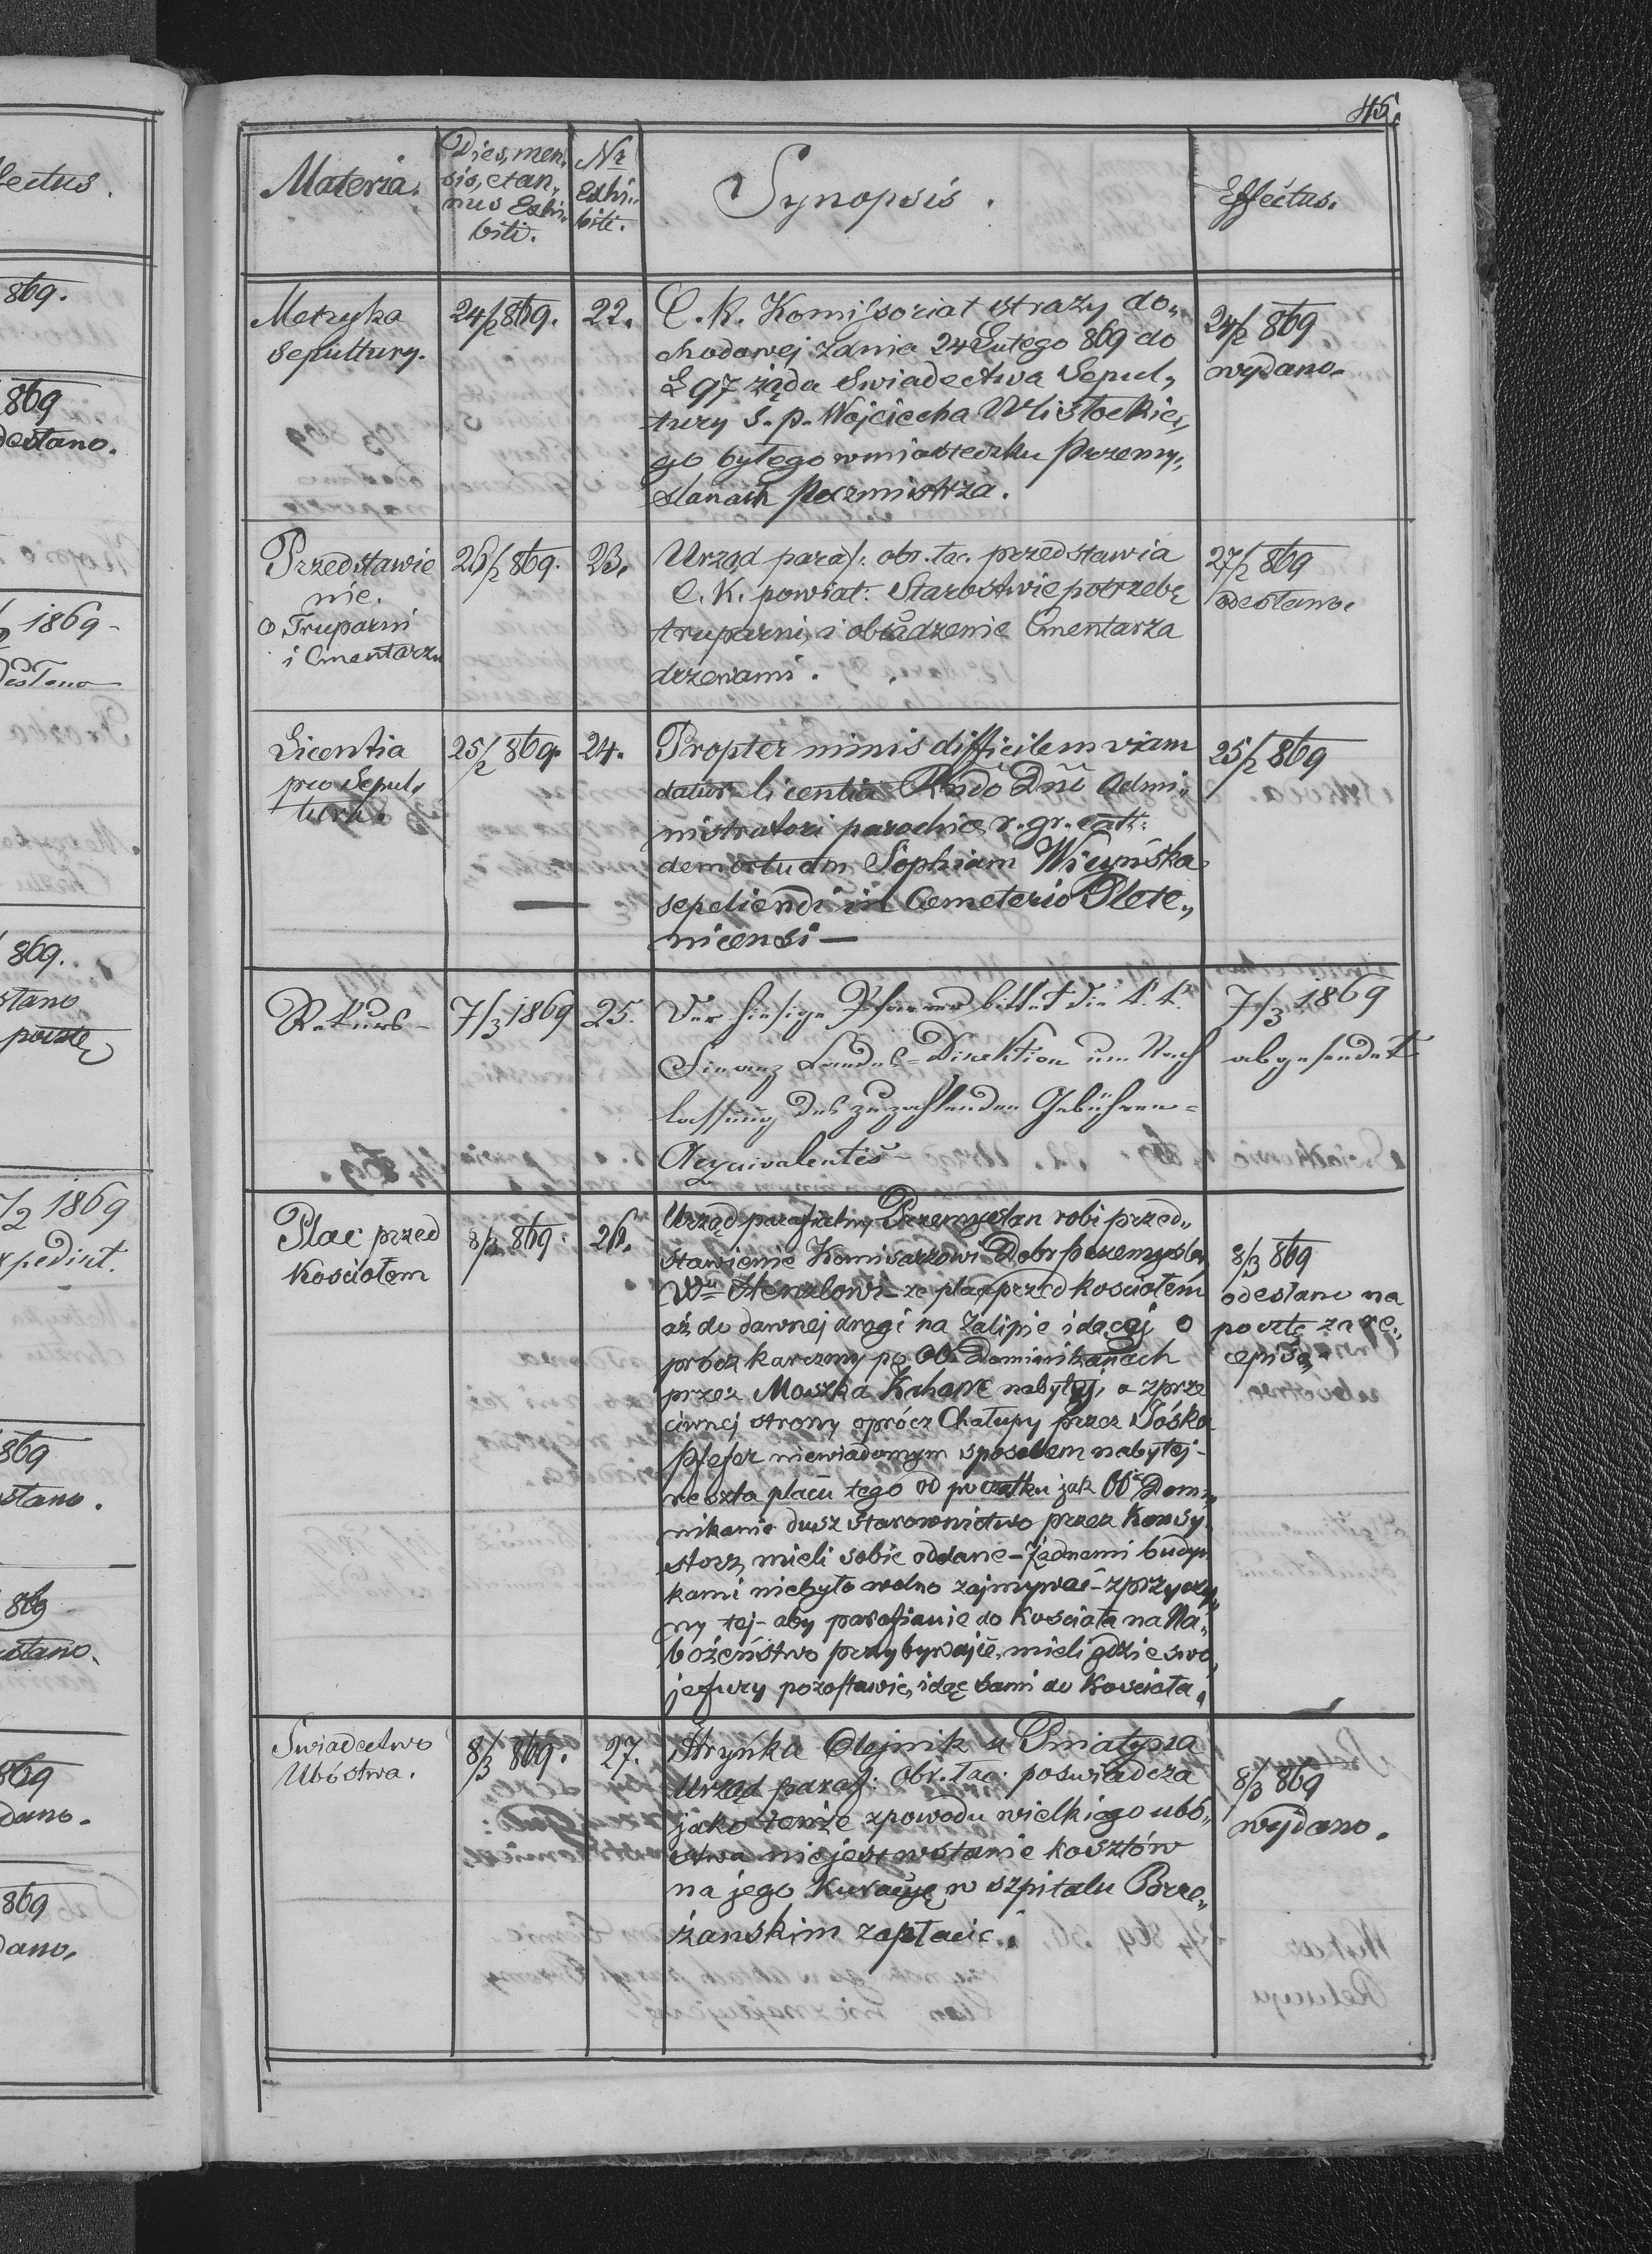 45.
Materia.
Dies, men„
sis, et an„
nus Exhi„
biti.
Nr
Exhi„
biti.
Synopsis.
Effectus.
Metryka
Sepultury.
24/2 869.
22.
C. K. Komissoriat strazy do„
chodowej zdnia 24 Lutego 869 do
L 97 ząda Swiadectwa Sepul„
tury s. p. Wojciecha Wisłockie„
go byłego w miasteczku Przemy„
slanach Poczmistrza.
24/2 869
wydano.
Przedstawie
nie.
o Truparni
i Cmentarzu
26/2 869.
23.
Urząd paraf: obr. łac. przedstawia
C. K. powiat: Starostwie potrzebę
truparni, i obsadzenie Cmentarza
drzewami.
27/2 869
odesłano.
Licentia
pro Sepul„
tura.
25/2 869.
24.
Propter nimis difficilem viam
datur licentia Rndo Dno Admi„
nistratori parochiae r. gr. catt:
demortuam Sophiam
sepeliendi in Cemeterio Plete„
nicensi —
25/2 869
Rekurs —
7/3 1869
25.
Der hiesige Pfarrer bittet die k. k.
Finanz Landes-Direktion um Nach
lassung des zuzahlenden Gebühren=
Aequivalentes —
7/3 1869
abgesendet
Plac przed
Kosciołem
8/3 869.
26.
Urząd parafialny Przemyslan robi przed„
stawienie Komisarzowi Dobr Przemyslan
Wu Henzlowi – ze plac przed kosciołem
aż do dawnej drogi na Zalipie idącej o
prócz karczmy po OO. Dominikanach
przez Moszka Kahane nabytej, a zprze
ciwnej strony oprócz Chałupy przez Jóska
Pfefer niewiadomym sposobem nabytej –
reszta placu tego od początku jak OO. Domi„
nikanie dusz starownictwo przez Konsy„
storz mieli sobie oddane – żadnemi budyn
kami niebyło wolno zajmywać – zprzyczy„
ny tej – aby parafianie do Kościoła na Na„
bożeństwo przybywając, mieli gdzie swo„
je fury pozostawić, idąc sami do Kościoła.
8/3 869
odesłano na
pocztę za re„
cepisą.
Swiadectwo
Ubóstwa.
8/3 869.
27.
Hryńka Olejnik z Pniatyna
Urząd paraf: Obr. łac: poswiadcza
jako tenże zpowodu wielkiego ubó„
stwa niejest wstanie kosztów
na jego Kuracyę w szpitalu Brze„
żanskim zapłacić.
8/3 869
wydano.